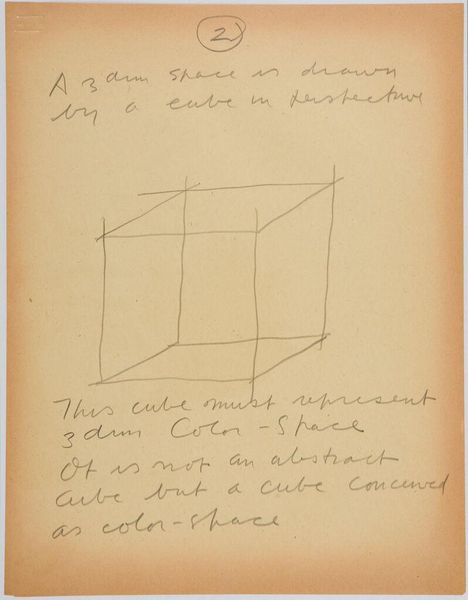 2)
A 3 dim space is drawn
by a cube in perspective
This cube must represent
3 dim Color-Space
It is not an abstract
cube but a cube conceived
as color-space